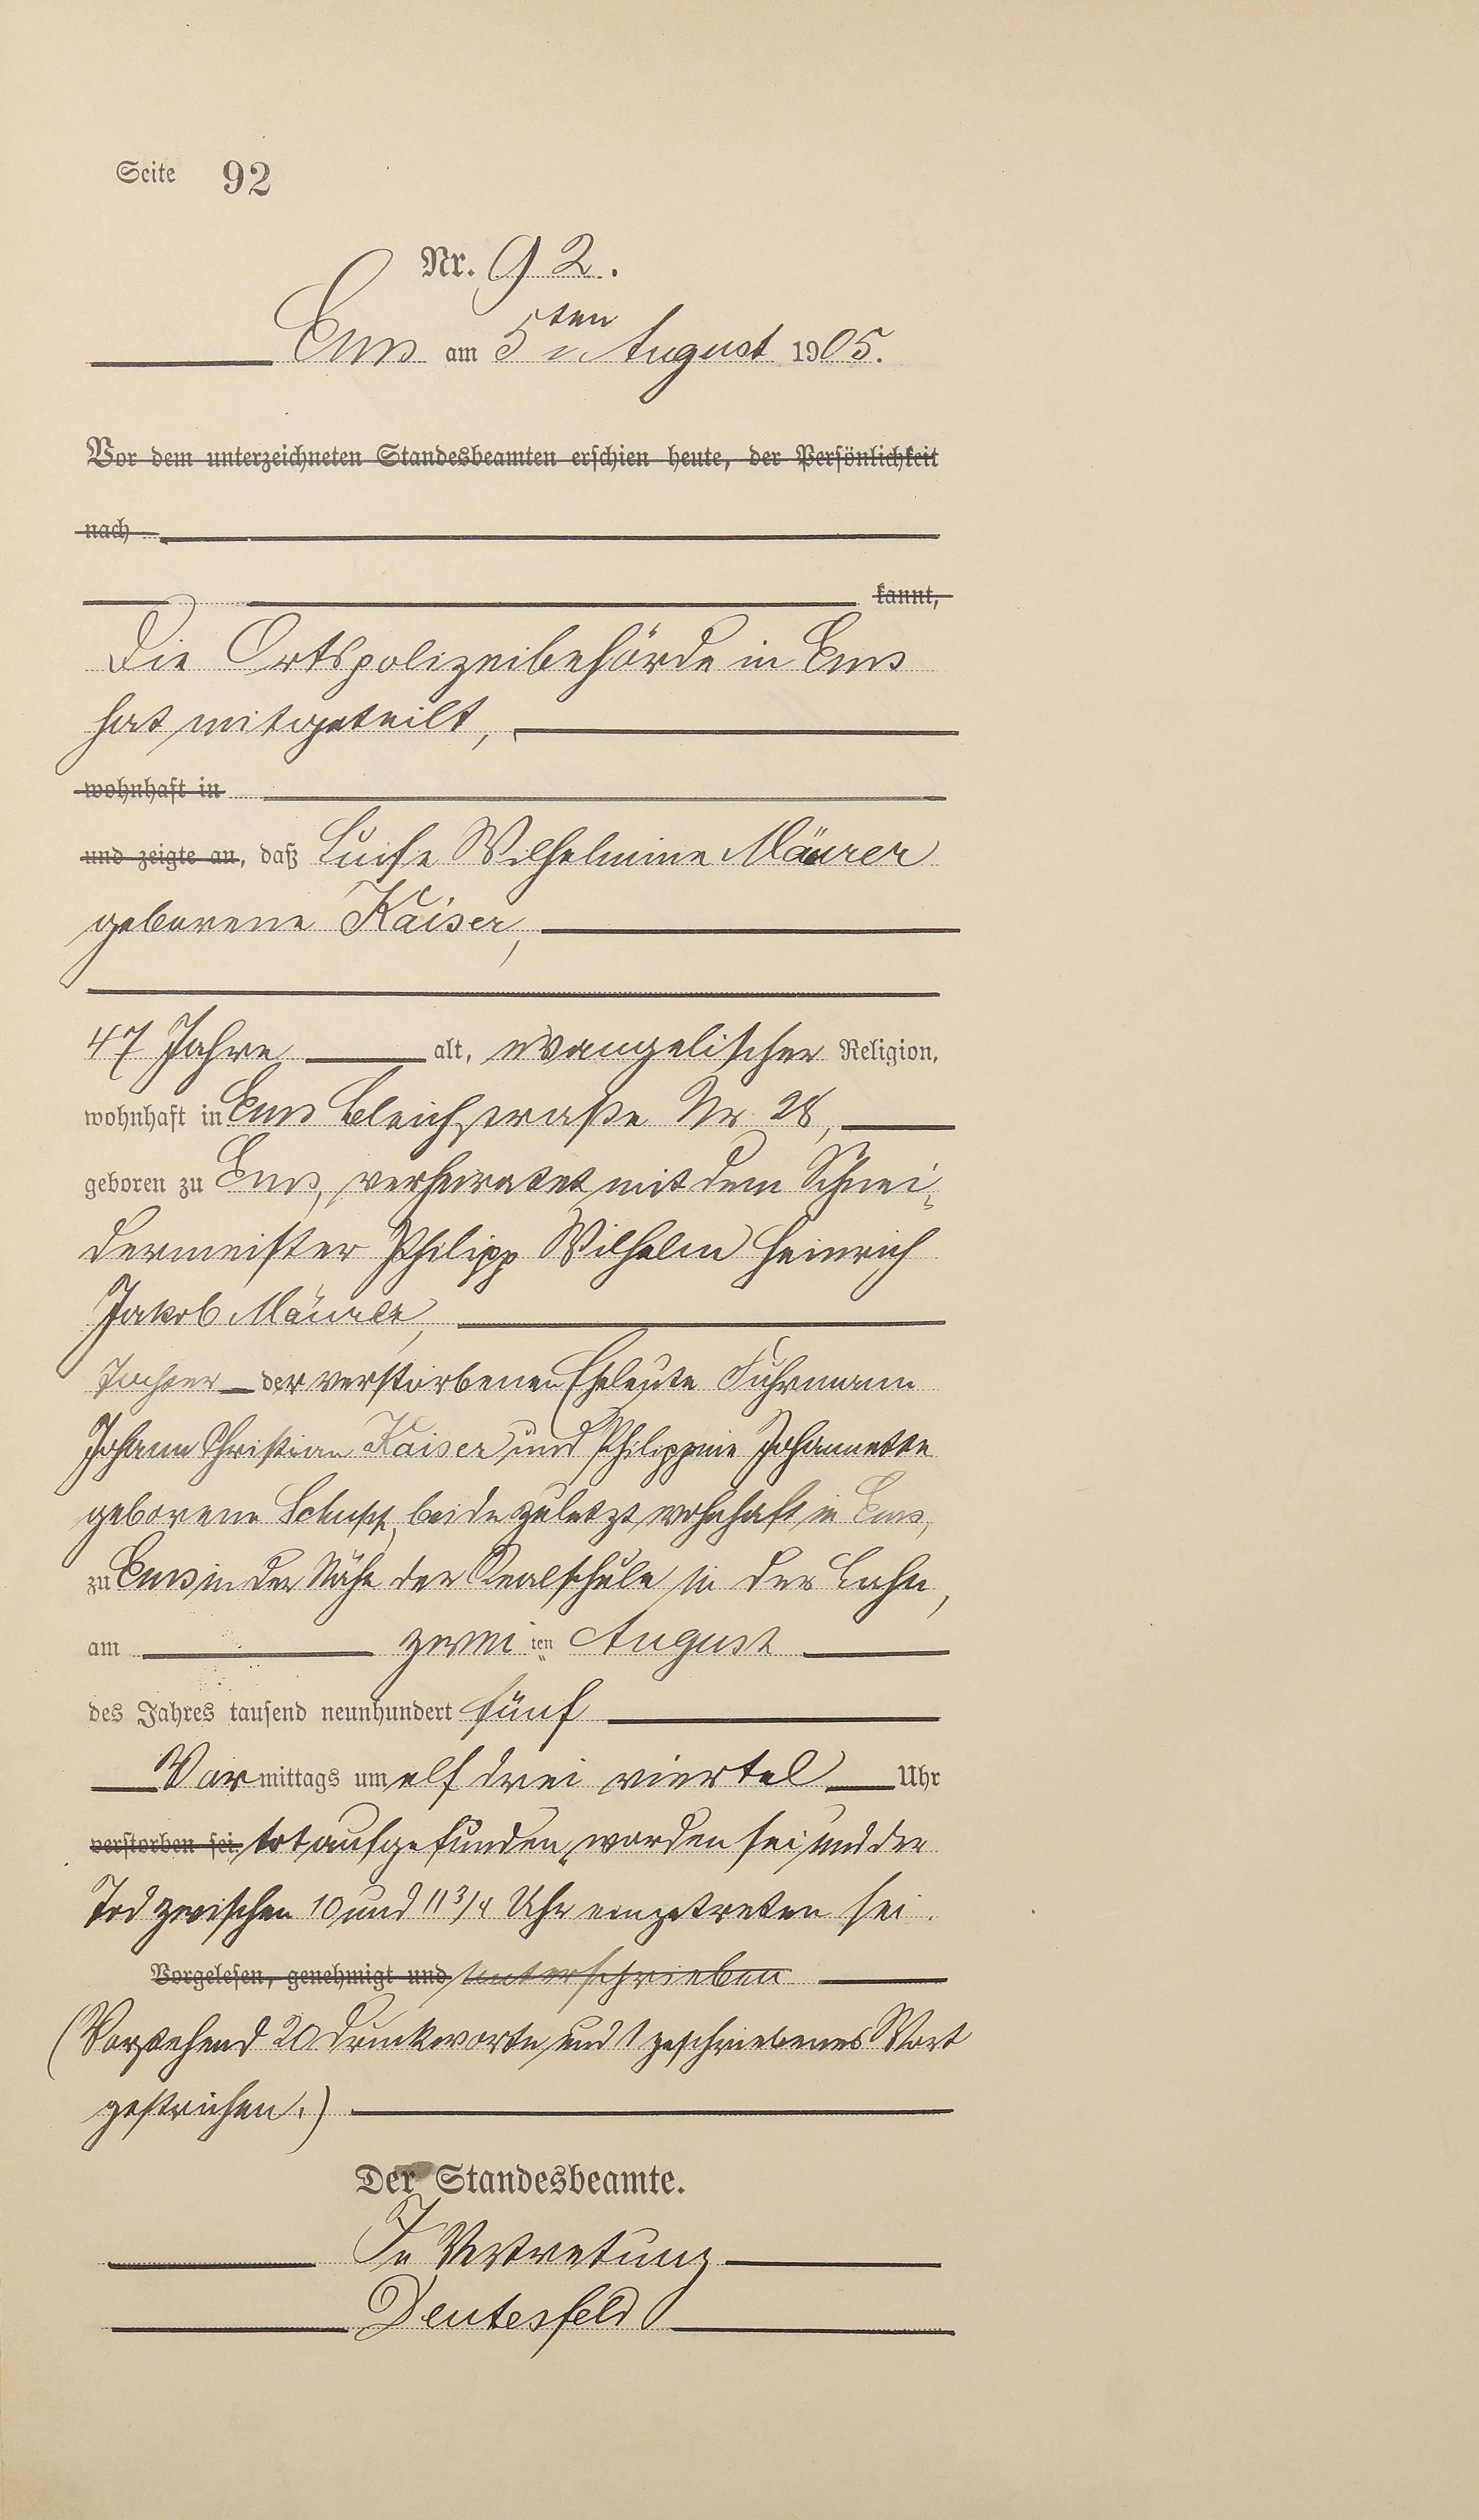 Seite 92
Nr. 92.
Ems am 5ten August 1905.
Vor dem unterzeichneten Standesbeamten erschien heute, der Persönlichkeit
nach
kannt,
Die Ortspolizeibehörde in Ems
hat mitgeteilt,
wohnhaft in
und zeigte an, daß Luise Wilhelmine Mäurer
geborene Kaiser,
47 Jahre alt, evangelischer Religion,
wohnhaft in Ems Bleichstraße Nr. 28,
geboren zu Ems, verheiratet mit dem Schnei-
dermeister Philipp Wilhelm Heinrich
Jakob Mäurer,
Tochter der verstorbenen Eheleute Fuhrmann
Johann Christian Kaiser und Philippine Johannette
geborene Schupp, beide zuletzt wohnhaft in Ems,
zu Ems in der Nähe der Realschule in der Lahn,
am zweiten August
des Jahres tausend neunhundert fünf
Vormittags um elf drei viertel Uhr
verstorben sei tot aufgefunden worden sei und der
Tod zwischen 10 und 11 3/4 Uhr eingetreten sei.
Vorgelesen, genehmigt und unterschrieben
(Vorstehend 20 Druckworte und 1 geschriebenes Wort
gestrichen.)
Der Standesbeamte.
In Vertretung
Deutesfeld